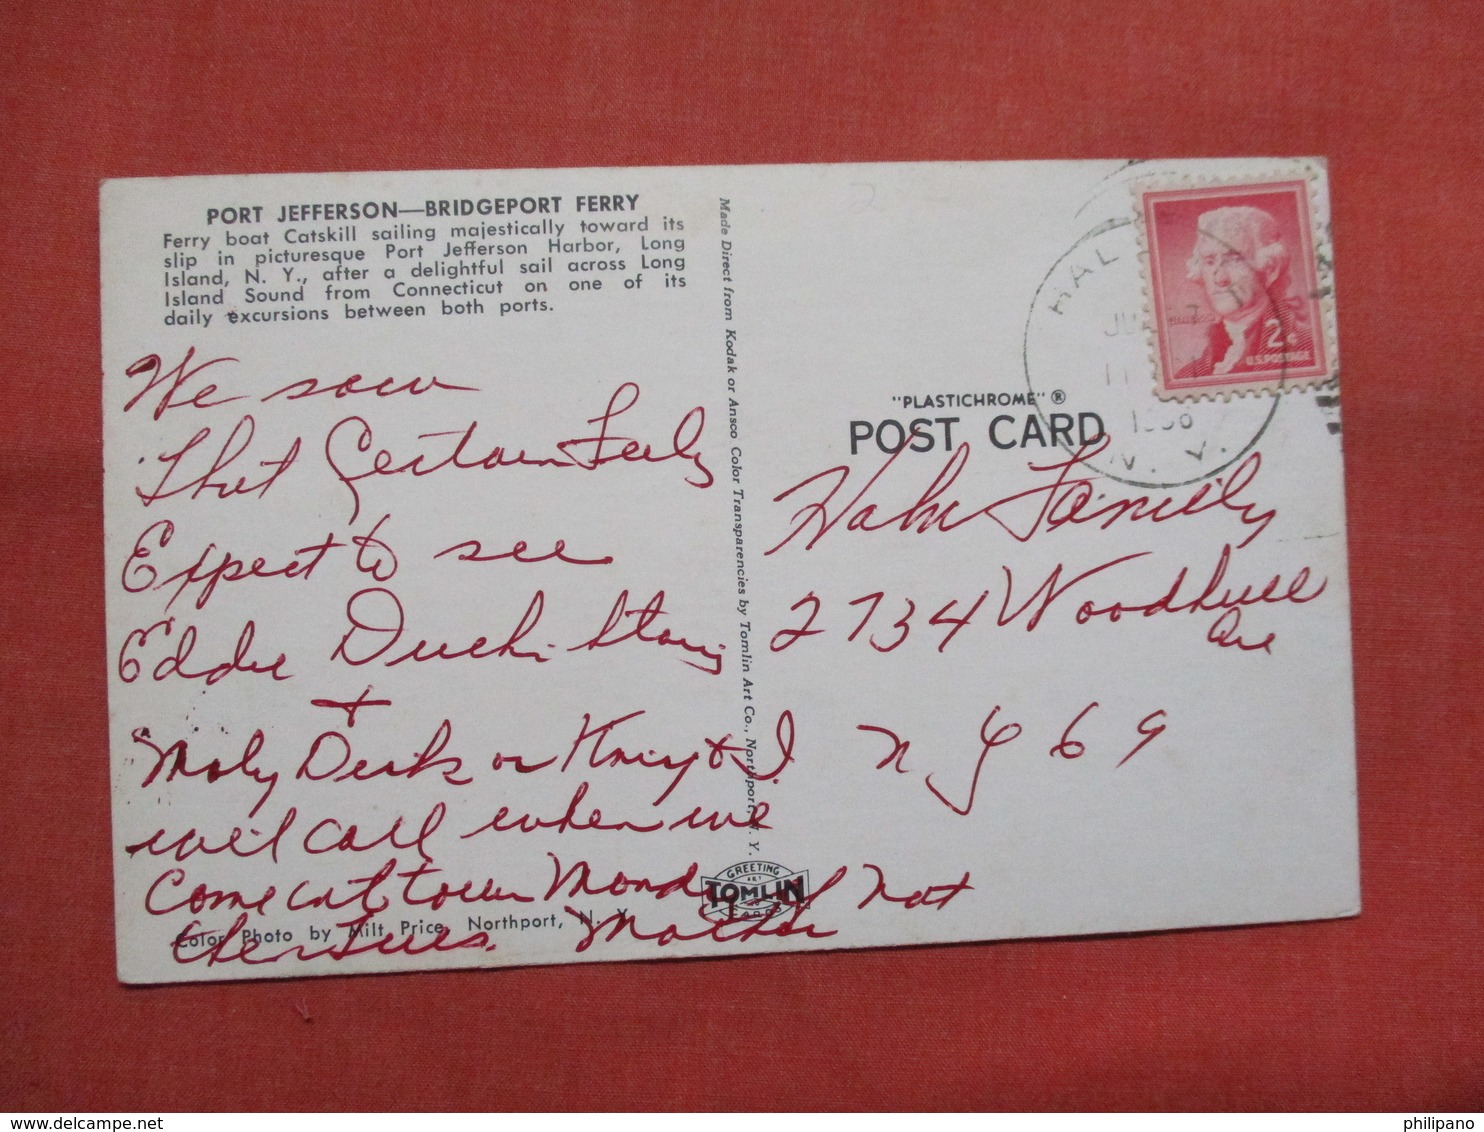 PORT JEFFERSON—BRIDGEPORT FERRY
Ferry boat Catskill sailing majestically toward its
slip in picturesque Port Jefferson Harbor, Long
Island, N. Y., after a delightful sail across Long
Island Sound from Connecticut on one of its
daily excursions between both ports.
We saw
that Certain
Expect to see
Eddie
+
or + I.
will call when we
Come into town Monday if not
then Tues. Mother
Color Photo by Milt Price, Northport, N. Y.
Made Direct from Kodak or Ansco Color Transparencies by Tomlin Art Co., Northport, N. Y.
GREETING
ART
TOMLIN
CARDS
"PLASTICHROME" ®
POST CARD
HAL
11
N. Y.
2¢
U.S. POSTAGE
Hahn Family
2734 Woodhull
Ave
N Y 69
philipano
www.delcampe.net